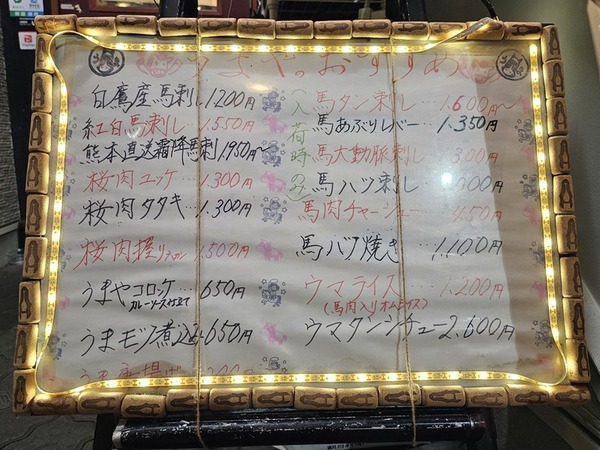 うまやのおすすめ
白鷹産馬刺し 1200円
紅白馬刺し 1.550円
熊本直送霜降馬刺 1950円〜
桜肉ユッケ 1.300円
桜肉タタキ 1.300円
桜肉握り 1500円
うまやコロッケ 650円
カレーソース仕立て
うまモツ煮込み 650円
(入荷時のみ)
馬タン刺し 1.600円〜
馬あぶりレバー 1.350円
馬大動脈刺し 円
馬ハツ刺し 円
馬肉チャーシュー 450円
馬ハツ焼き 1,100円
ウマライス 1.200円
(馬肉入りオムライス)
ウマタンシチュー 2.600円